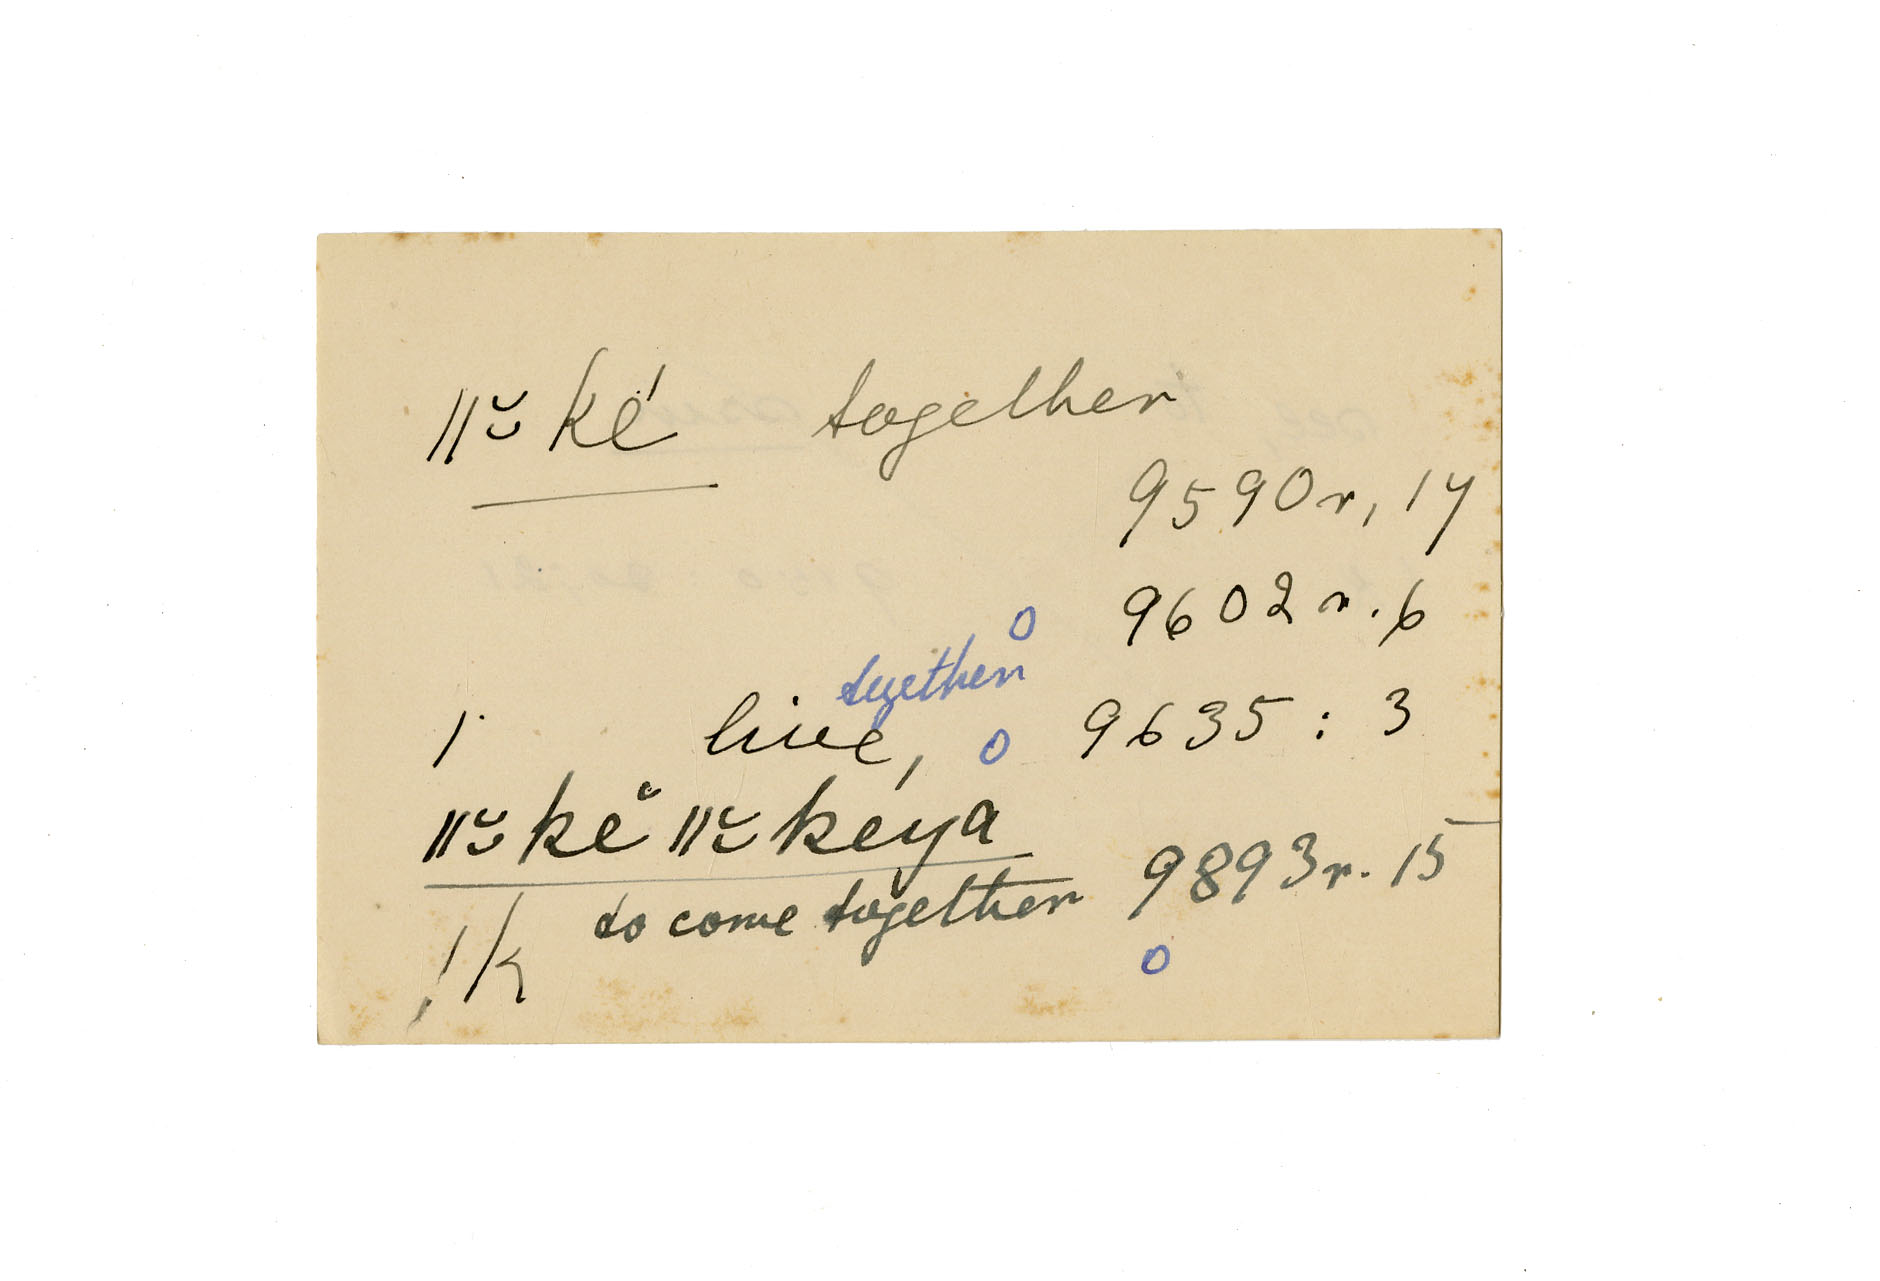 ǁ̆ ké together
9590r, 17
9602r.6
together 0
1 live, 0 9635 : 3
ǁ̆ kĕ ǁ̆ kéya
to come together 9893r.15
!k 0